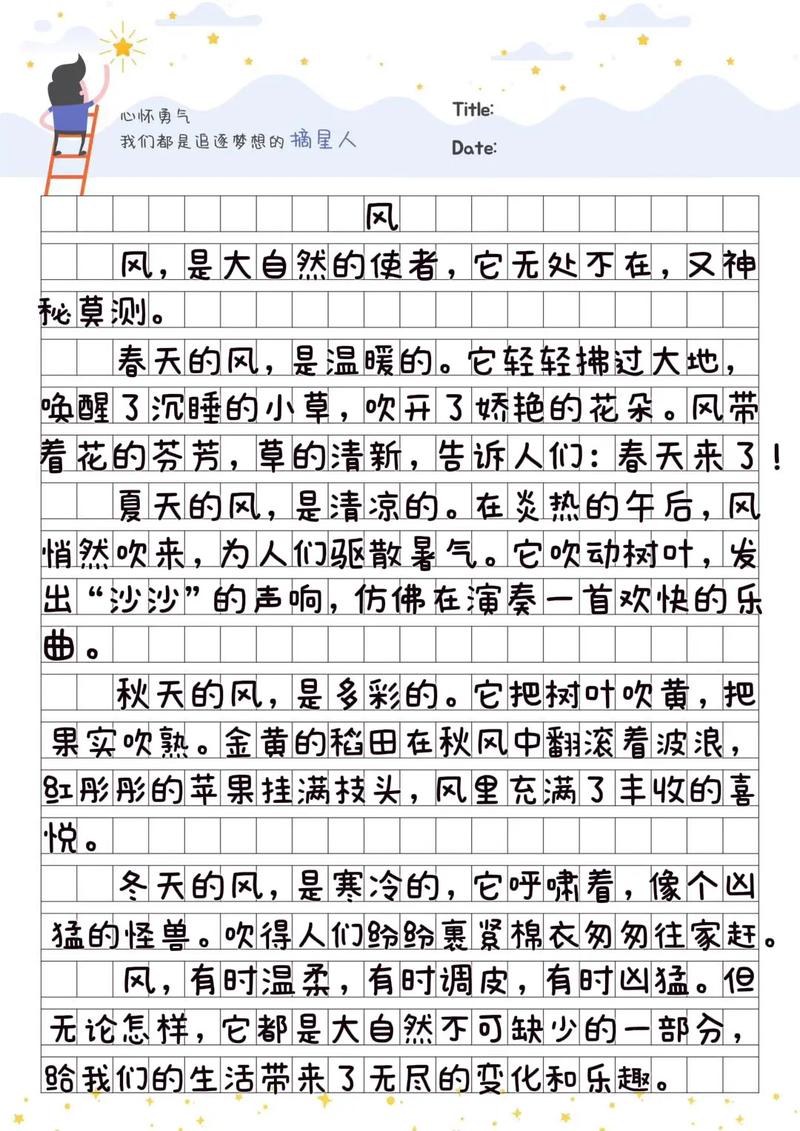 心怀勇气
我们都是追逐梦想的摘星人
Title:
Date:
风
风，是大自然的使者，它无处不在，又神
秘莫测。
春天的风，是温暖的。它轻轻拂过大地，
唤醒了沉睡的小草，吹开了娇艳的花朵。风带
着花的芬芳，草的清新，告诉人们：春天来了！
夏天的风，是清凉的。在炎热的午后，风
悄然吹来，为人们驱散暑气。它吹动树叶，发
出“沙沙”的声响，仿佛在演奏一首欢快的乐
曲。
秋天的风，是多彩的。它把树叶吹黄，把
果实吹熟。金黄的稻田在秋风中翻滚着波浪，
红彤彤的苹果挂满枝头，风里充满了丰收的喜
悦。
冬天的风，是寒冷的，它呼啸着，像个凶
猛的怪兽。吹得人们纷纷裹紧棉衣匆匆往家赶。
风，有时温柔，有时调皮，有时凶猛。但
无论怎样，它都是大自然不可缺少的一部分，
给我们的生活带来了无尽的变化和乐趣。